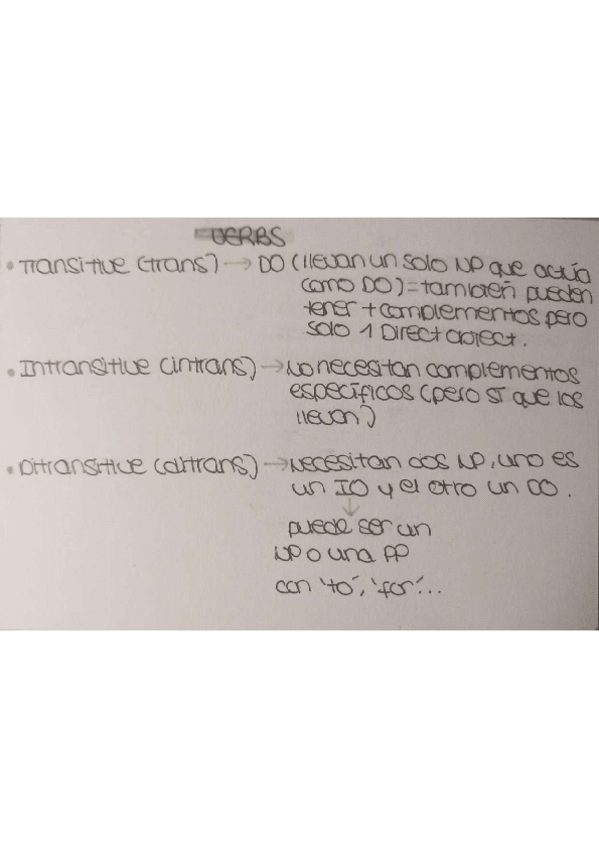 VERBS
• Transitive (trans) → DO (llevan un solo NP que actúa
como DO) = también pueden
tener + complementos pero
solo 1 Direct object.
• Intransitive (intrans) → No necesitan complementos
específicos (pero sí que los
llevan)
• Ditransitive (ditrans) → Necesitan dos NP, uno es
un IO y el otro un DO.
↓
puede ser un
NP o una PP
con 'to', 'for'...